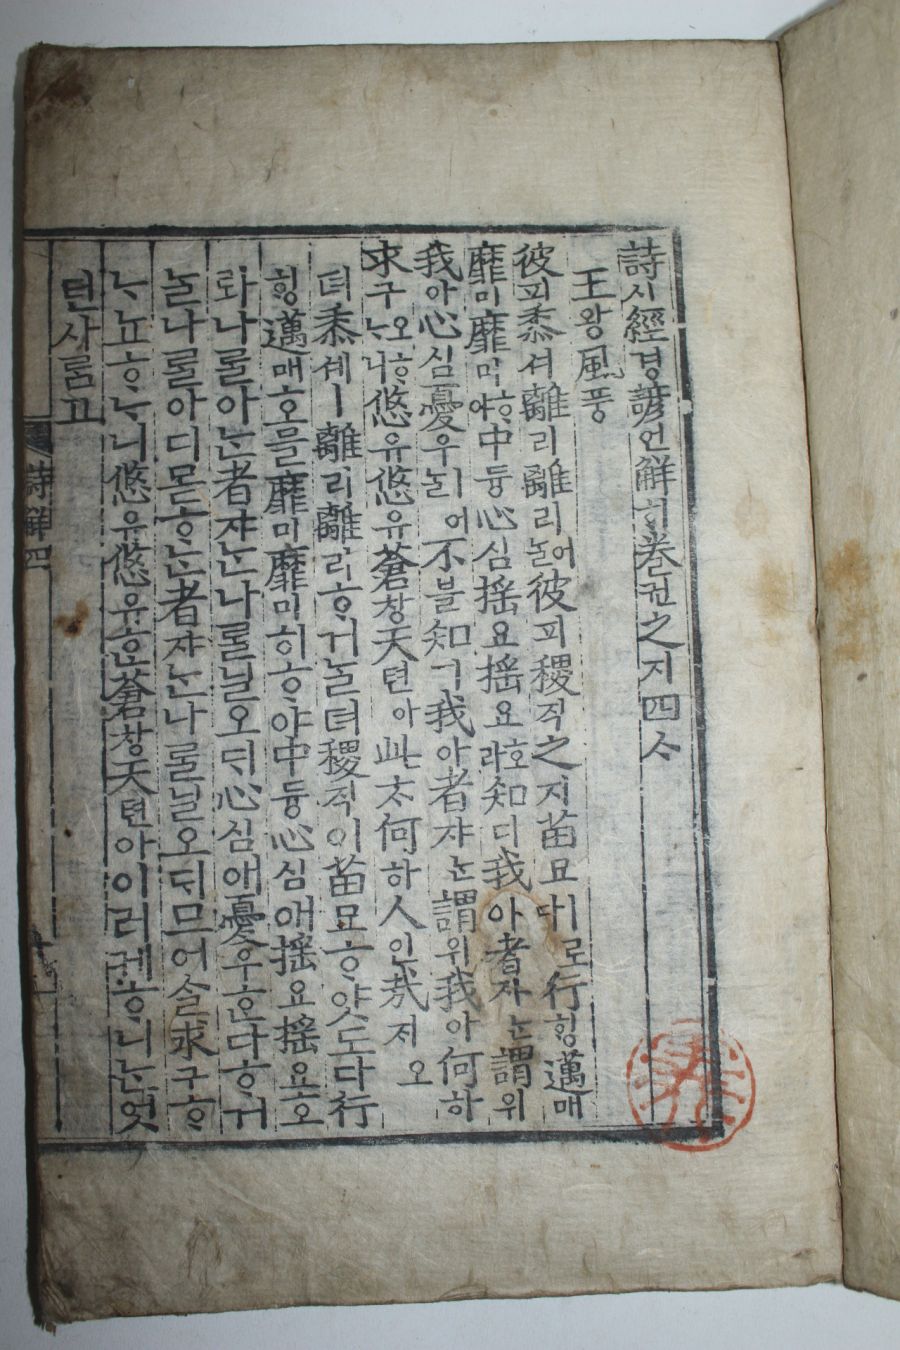 詩시經경諺언解ᄒᆡ卷권之지四ᄉᆞ
王왕風풍
彼피黍셔離리離리ᄂᆞᆯ어彼피稷직之지苗묘ㅣ로다行ᄒᆡᆼ邁매
靡미靡미ᄒᆞ야中듕心심搖요搖요호라知디我아者쟈ᄂᆞᆫ謂위
我아心심憂우ㅣ어ᄂᆞᆯ不블知디我아者쟈ᄂᆞᆫ謂위我아何하
求구오ᄒᆞᄂᆞ니悠유悠유蒼창天텬아此ᄎᆞ何하人인哉ᄌᆡ오
뎌黍셔ㅣ離리離리ᄒᆞ거ᄂᆞᆯ뎌稷직이苗묘ᄒᆞ얏도다行
ᄒᆡᆼ邁매홈을靡미靡미히ᄒᆞ야中듕心심애搖요搖요호
라나ᄅᆞᆯ아ᄂᆞᆫ者쟈ᄂᆞᆫ나ᄅᆞᆯ닐오ᄃᆡ心심애憂우ᄒᆞᆫ다ᄒᆞ거
ᄂᆞᆯ나ᄅᆞᆯ아디몯ᄒᆞᄂᆞᆫ者쟈ᄂᆞᆫ나ᄅᆞᆯ닐오ᄃᆡ므어슬求구ᄒᆞ
ᄂᆞ뇨ᄒᆞᄂᆞ니悠유悠유ᄒᆞᆫ蒼창天텬아이러케ᄒᆞ니ᄂᆞᆫ엇
던사ᄅᆞᆷ고
詩解四